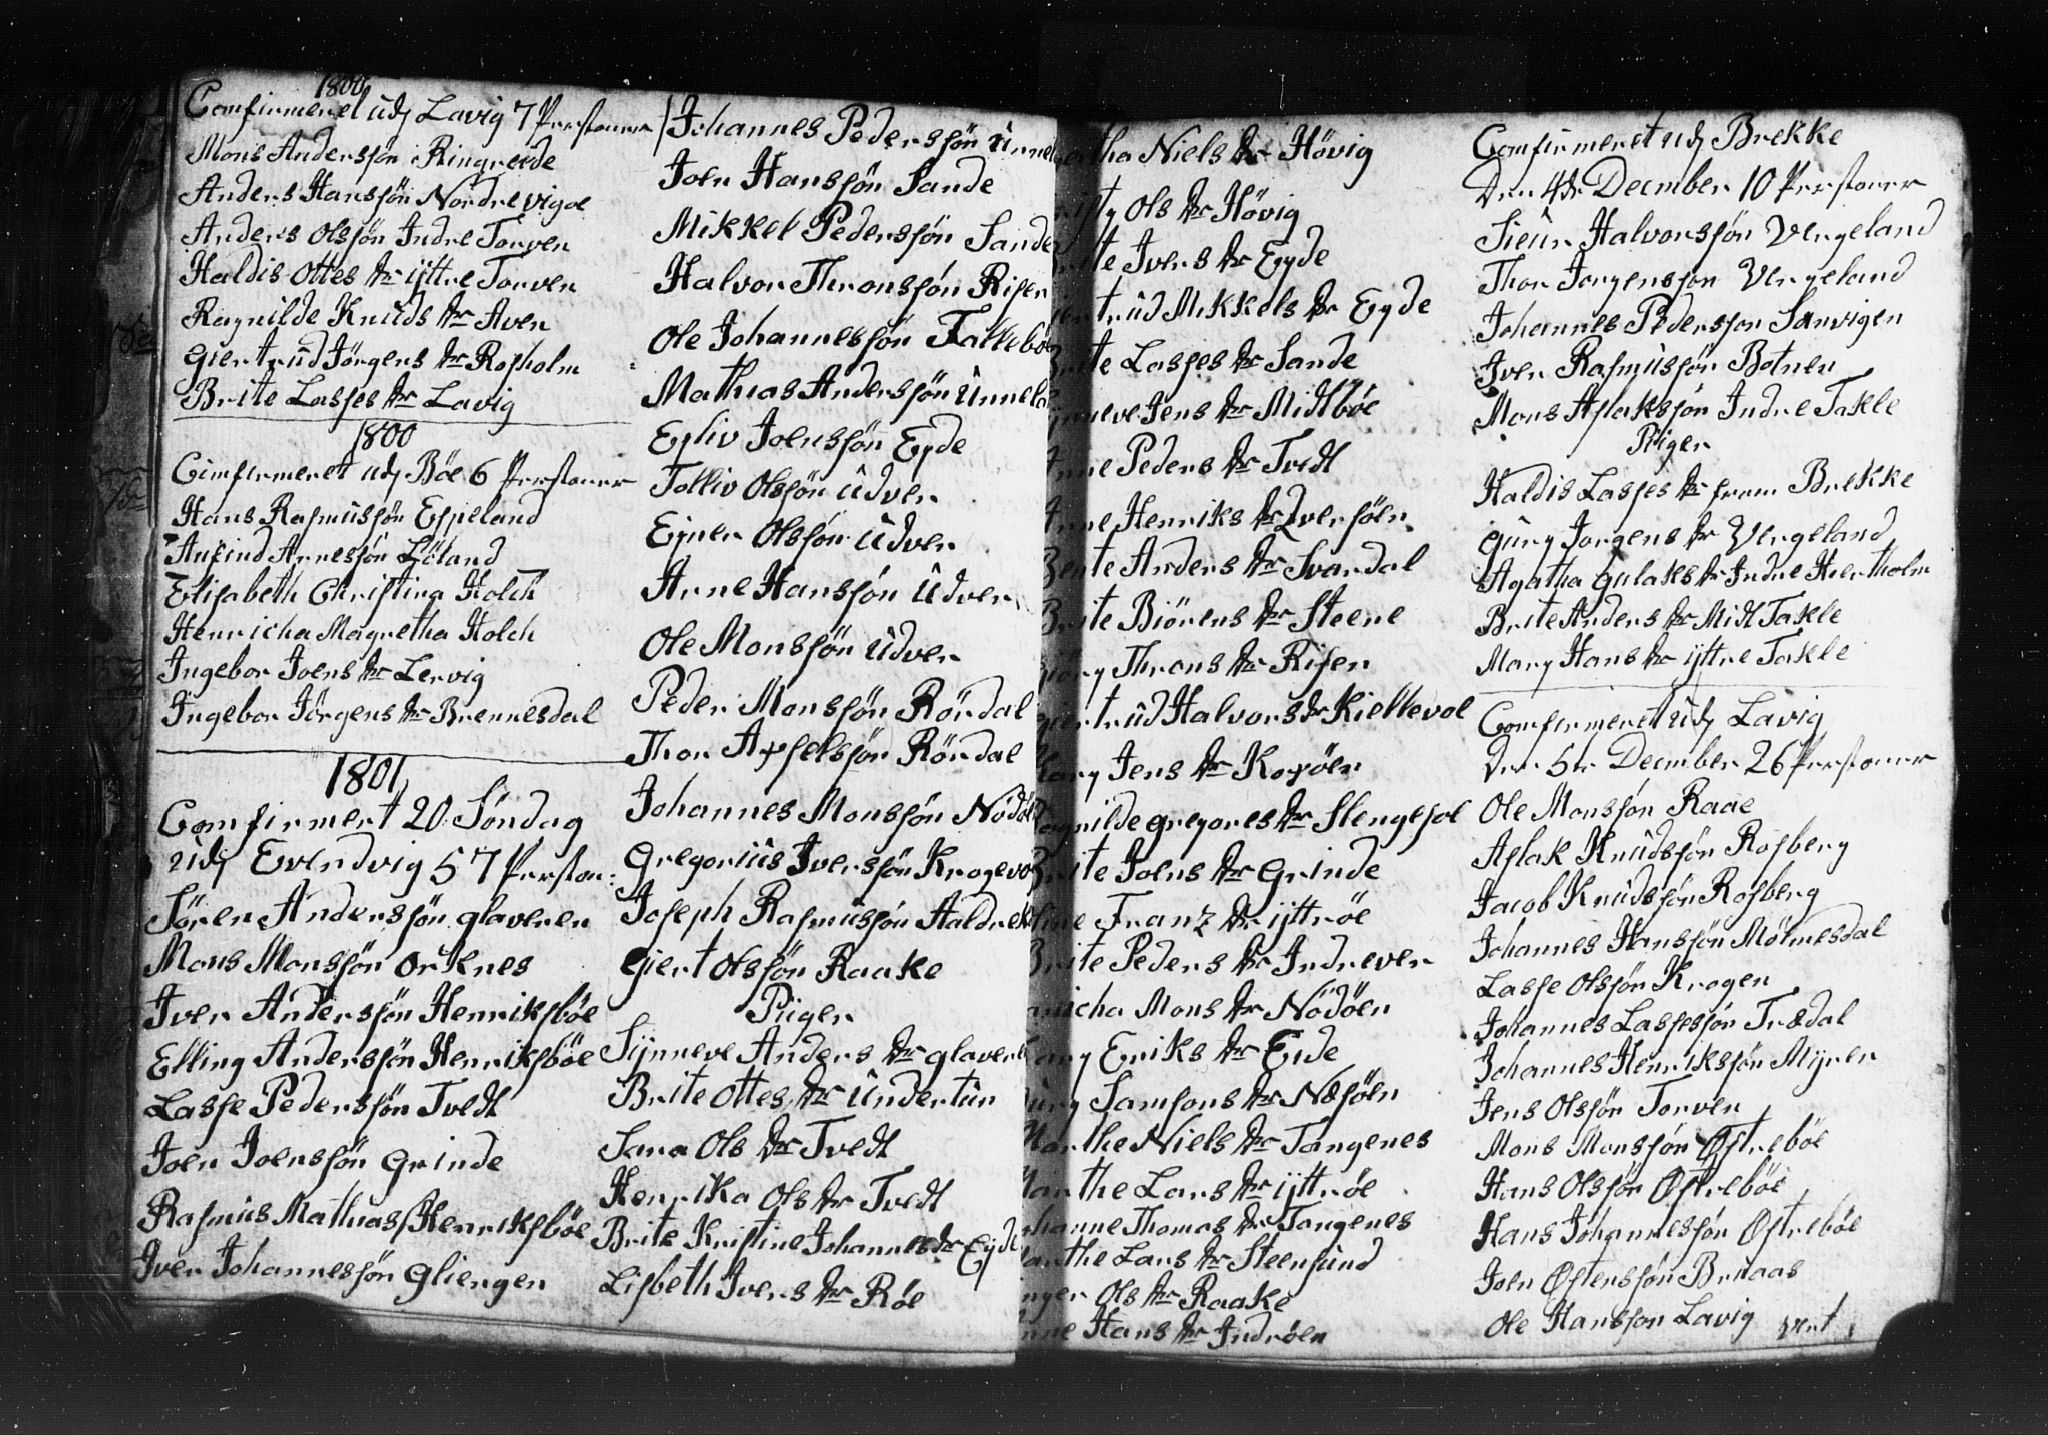 1800
Comfirmeret udj Lavig 7 Personer
Mons Anderssön Ringreide
Anders Hanssön Nordrevigoe
Anders Olssön Indre Torven
Haldis Ottes dr ÿttre Torven
Ragnilde Knüds dr Aven
Giertrüd Jörgens dr Rosholm
Brite Lasses dr Lavig
1800
Comfirmeret udj Böe 6 Personer
Hans Rasmüssön Espeland
Anfind Arnessön Löland
Elisabeth Christina Holch
Henricha Magretha Holch
Ingebor Joens dr Lervig
Ingebor Jörgens dr Brennesdal
1801
Comfirmert 20 Söndag
üdj Evendvig 57 Person:
Sören Anderssön glaveren
Mons Monssön Orknes
Iver Anderssön Henriksböe
Elling Anderssön Henriksböe
Lasse Pederssön Tvedt
Joen Joenssön Grinde
Rasmüs Mathias Henriksböe
Iver Johannessön Gliengen
Johannes Pederssön ünnel
Joen Hanssön Sande
Mikkel Pederssön Sande
Halvor Thronssön Risen
Ole Johannessön Falleböe
Mathias Anderssön Ünnela
Eyliv Joenssön Eyde
Tolliv Olssön üdver
Ejner Olssön üdver
Arne Hanssön üdver
Ole Monssön üdver
Peder Monssön Rördal
Thor Axselssön Rördal
Johannes Monssön Nödö
Gregoriüs Iverssön Krogevo
Joseph Rasmüssön Aaldrek
Giert Olssön Raake
Piiger
Sÿnneve Anders dr glavere
Brite Ottes dr ündertün
Sara Ols dr Tvedt
Henrika Ols dr Tvedt
Brite Kristine Johannes dr Eyde
Lisbeth Ivers dr Röe
ertha Niels dr Hövig
risty Ols dr Hövig
rite Ivers dr Eyde
iertrüd Mikkels dr Eyde
rite Lasses dr Sande
ÿnneve Jens dr Midtböe
nne Peders dr Tvedt
nne Henriks dr Dversöen
Bente Anders dr Svardal
Brite Biörens dr Steene
iörg Throns dr Risen
giertrüd Halvors dr Kiellevol
Mary Jens dr Koxöen
agnilde gregores dr Slengesol
Brite Joens dr Grinde
line Franz dr ÿttröe
Brite Peders dr Indrever
nricha Mons dr Nödöen
ary Eriks dr Eyde
üry Samsons dr Næsöen
arthe Niels dr Tangenes
Marthe Lars dr ÿttröe
ohanne Thomas dr Tangenes
Marthe Lars dr Steensünd
nger Ols dr Raake
nne Hans dr Indröen
Comfirmeret üdj Brekke
den 4de December 10 Personer
Siür Halvorssön Vergeland
Thor Jorgensson Vergeland
Johannes Pedersson Sanvigen
Iver Rasmüssön Botnen
Mons Aslakssön Indre Takle
Piger
Haldis Lasses dr fram Brekke
gürg Jorgens dr Vergeland
Agatha gulaks dr Indre Hiertholm
Brite Anders dr Midt Takle
Mary Hans dr ÿttre Takle
Comfirmeret üdj Lavig
den 5te December 26 Personer
Ole Monssön Raae
Aslak Knüdssön Rosberg
Jacob Knüdssön Rosberg
Johannes Hanssön Mölmesdal
Lasse Olssön Krogen
Johannes Lassessön Trædal
Johannes Henrikssön Mÿren
Jens Olssön Torven
Mons Monssön Östreböe
Hans Olssön Östreböe
Hans Johannessön Östreböe
Joen Östenssön Braaas
Ole Hansson Lavig vert